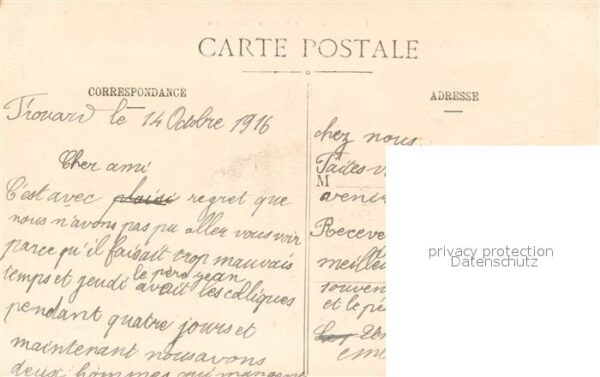 CARTE POSTALE
CORRESPONDANCE
Trouard le 14 Octobre 1916
Cher ami
C'est avec plaisi regret que
nous n'avons pas pu aller vous voir
parce qu'il faisait trop mauvais
temps et jeudi le père jean avait les colliques
pendant quatre jours et
maintenant nous avons
deux hommes qui mangent
ADRESSE
chez nous
Faites
M
Receve
meille
souven
et le pè
privacy protection
Datenschutz